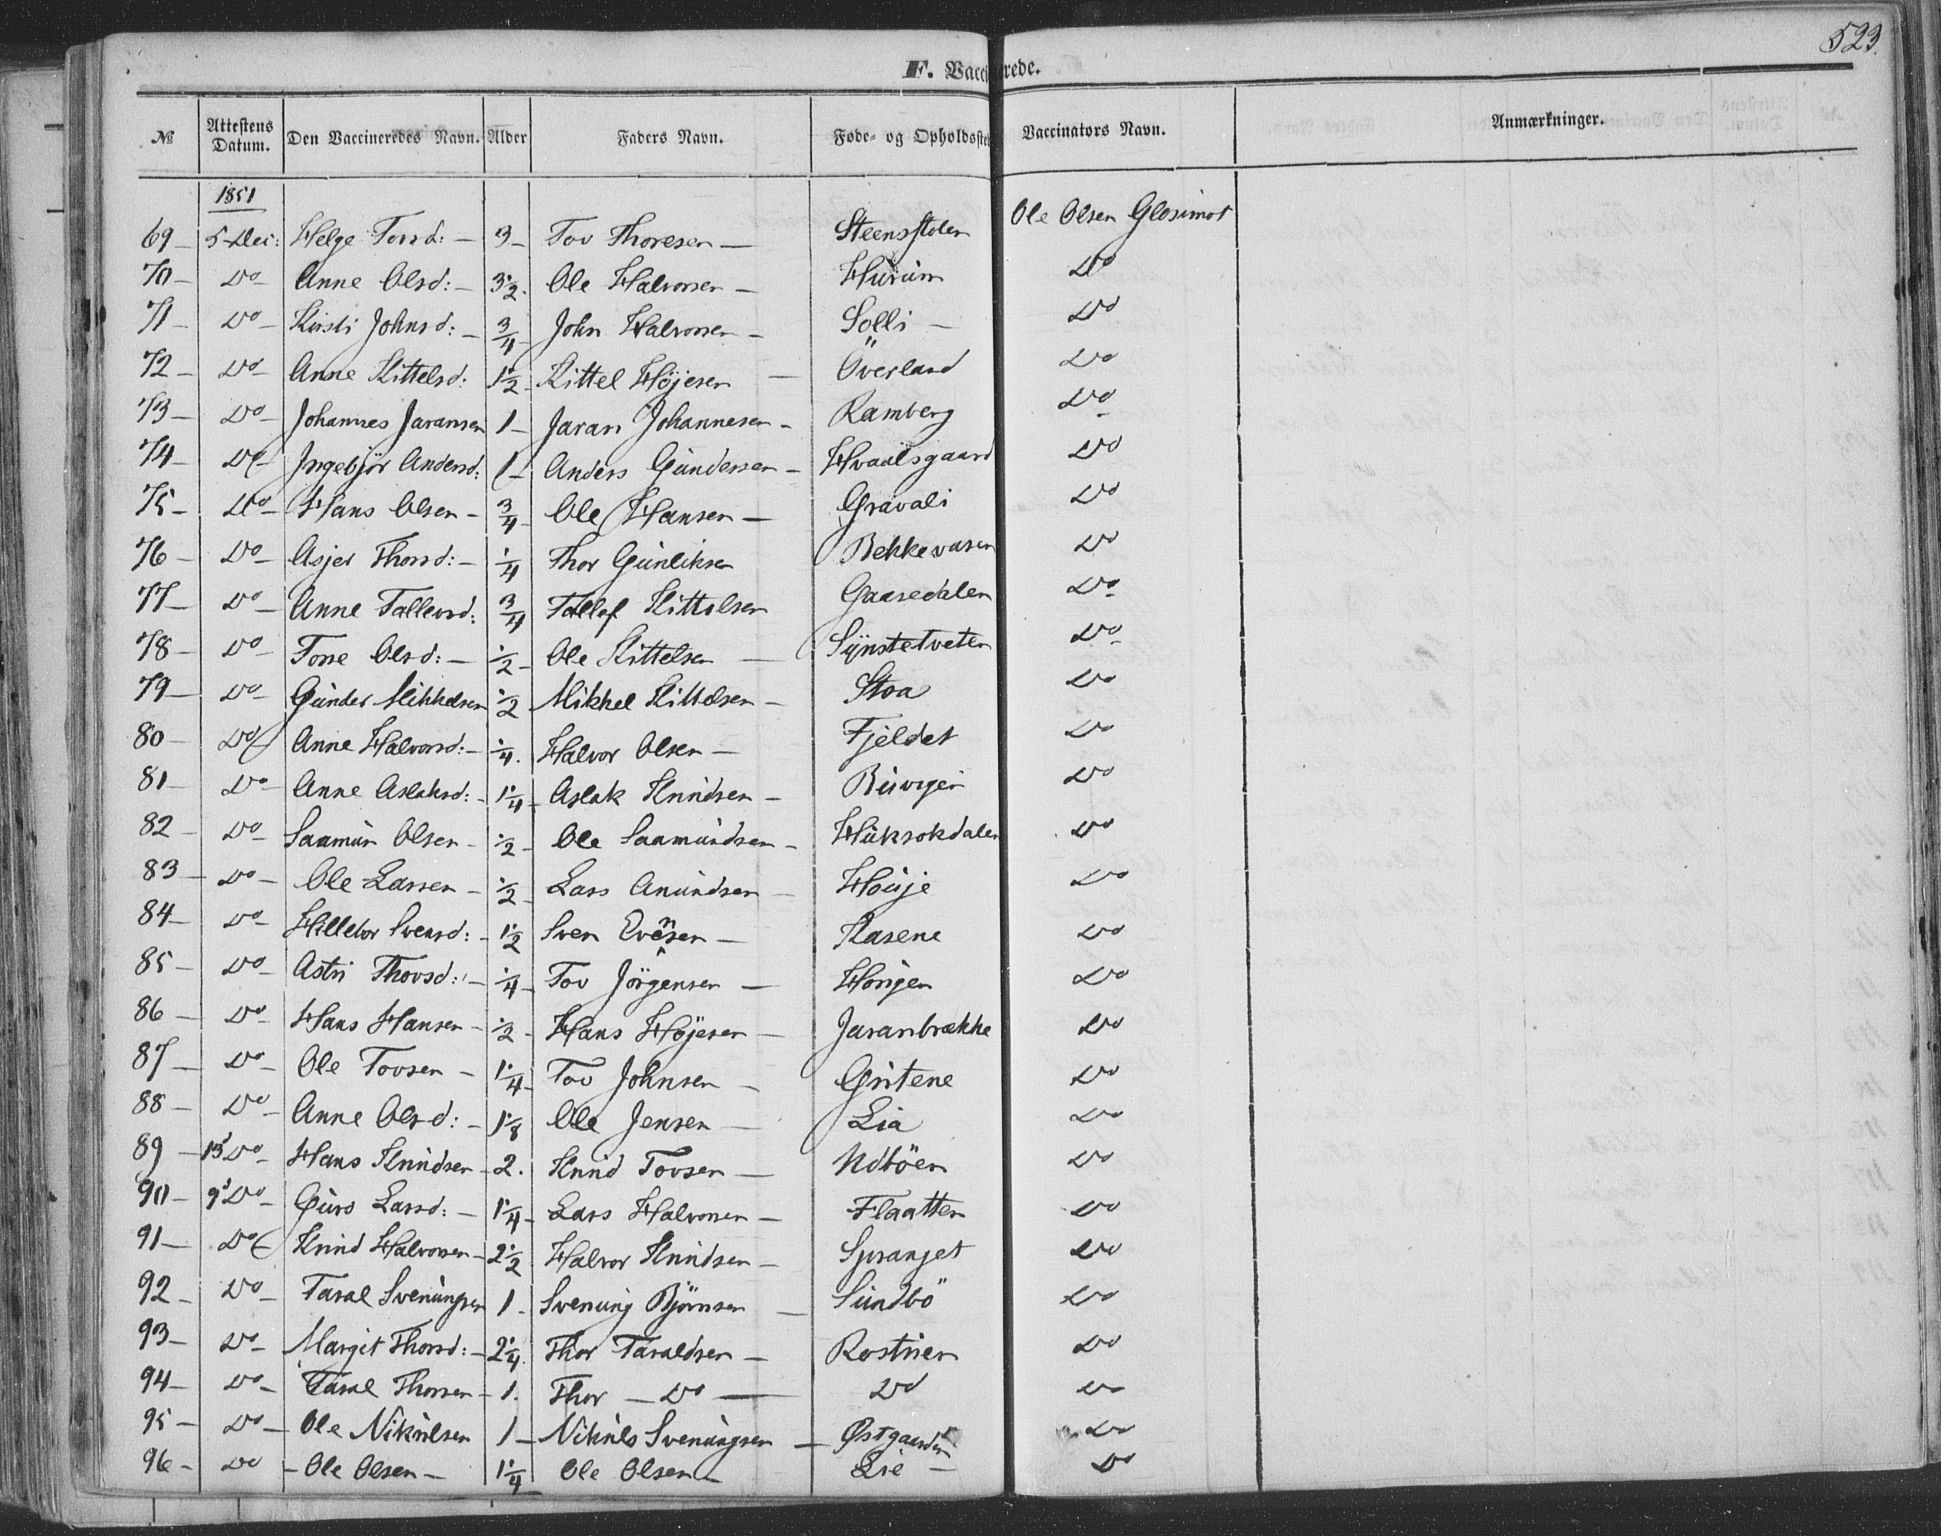 523.
F. Vaccinerede.
№ Attestens Datum. Den Vaccineredes Navn. Alder Faders Navn. Føde- og Opholdsste Vaccinators Navn. Anmærkninger.
1851
69 – 5 Dec: Helge Tovsd: – 3 – Tov Thoresen – Steensstolen Ole Olsen Glosimot
70 – Do – Anne Olsd: – 3 1/2. Ole Halvorsen – Hurum Do
71 – Do – Kirsti Johnsd: – 3/4 John Halvorsen – Solli – Do
72 – Do – Anne Kittelsd: 1 1/2 – Kittel Højesen – Överland Do
73 – Do – Johannes Jaransen 1 – Jaran Johannesen – Ramberg Do
74 – Do – Ingebjör Andersd: 1 – Anders Gundersen – Hvaalsgaard Do
75 – Do – Hans Olsen – 3/4 – Ole Hansen – Gravali Do
76 – Do – Asjer Thorsd: – 1/4 Thor Gunliksen Bekkevasen Do
77 – Do – Anne Tallevsd: 3/4 Tallef Kittelsen Gaasedalen Do
78 – Do – Tone Olsd: – 1/2 – Ole Kittelsen – Synstetveten Do
79 – Do – Gunder Mikkelsen 1/2 Mikkel Kittelsen – Stoa Do
80 – Do – Anne Halvorsd: – 1/4. Halvor Olsen – Fjeldet Do
81 – Do – Anne Aslaksd: – 1 1/4 – Aslak Knudsen – Buvigen Do
82 – Do – Saamun Olsen – 1/2 – Ole Saamundsen – Huksokdalen Do
83 – Do – Ole Larsen – 1/2 – Lars Anundsen – Houje Do
84 – Do – Hillebor Svensd: – 1 1/2 Sven Evensen – Kasene Do
85 – Do – Astri Thovsd: – 1/4 – Tov Jörgensen – Horigen Do
86 – Do – Hans Hansen – 1/2 – Hans Højesen – Jaranbrække Do
87 – Do – Ole Tovsen – 1 1/4 – Tov Johnsen – Gritene Do
88 – Do – Anne Olsd: – 1 1/8 Ole Jensen – Lia Do
89 – 13 Do – Hans Knudsen – 2. Knud Tovsen – Udböen Do
90 – 9 Do – Guro Larsd: – 1 1/4 – Lars Halvorsen – Flaatten Do
91 – Do – Knud Halvorsen – 2 1/2 Halvor Knudsen – Spranget Do
92 – Do – Taral Svenungsen 1 – Svenung Bjørnsen – Sundbö Do
93 – Do – Margit Thorsd: – 2 1/4. Thor Taraldsen – Rostuen Do
94 – Do – Taral Thorsen – 1. Thor – Do – Do Do
95 – Do – Ole Nikulsen 1 – Nikuls Svenungsen – Østgaarden Do
96 – Do – Ole Olsen – 1 1/4 – Ole Olsen – Lie – Do